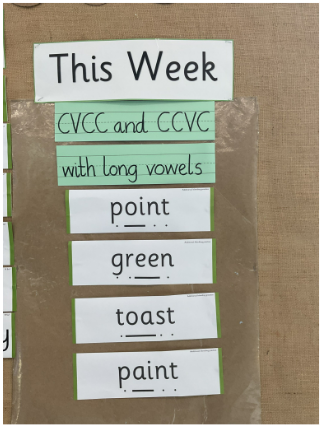 This Week
CVCC and CCVC
with long vowels
point
green
toast
paint
y